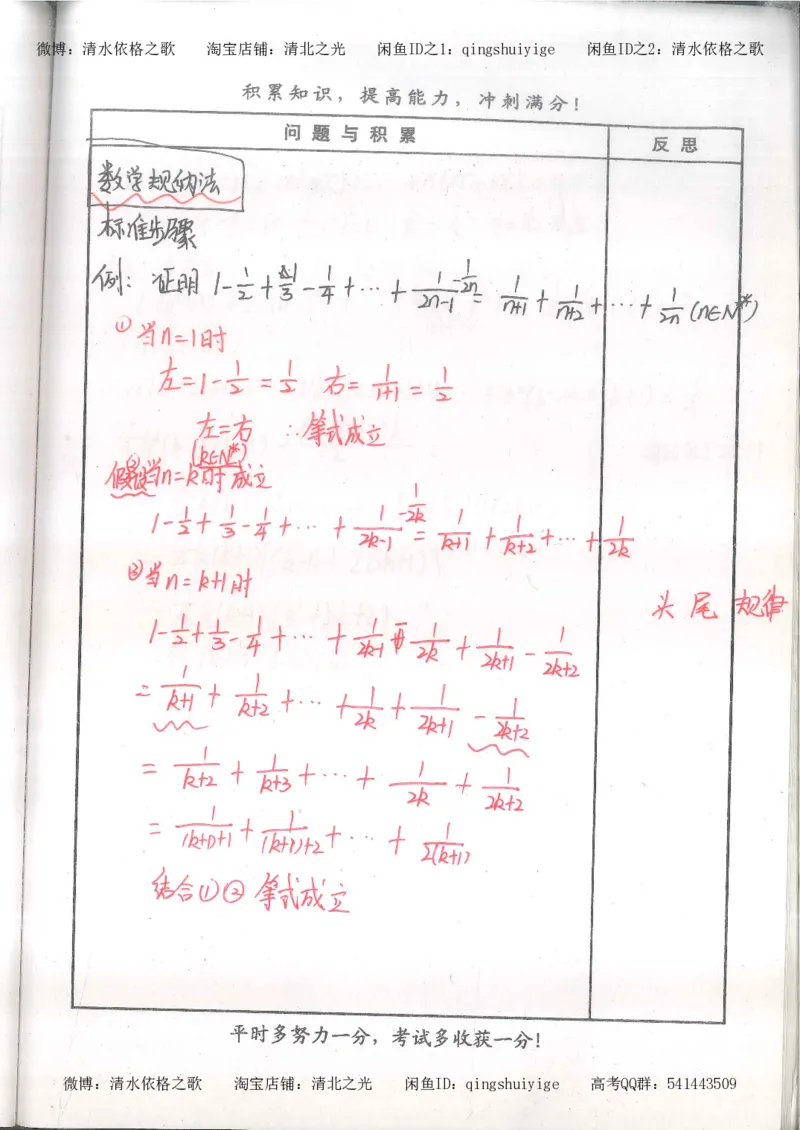 微博：清水依格之歌 淘宝店铺：清北之光 闲鱼ID之1：qingshuiyige 闲鱼ID之2：清水依格之歌
积累知识，提高能力，冲刺满分！
问题与积累 反思
数学规纳法
标准步骤
例：证明 1-1/2+1/3-1/4+⋯+1/(2n-1)-1/2n=1/(n+1)+1/(n+2)+⋯+1/2n (n∈N*)
①当n=1时
左=1-1/2=1/2 右=1/(1+1)=1/2
左=右 ∴等式成立
②假设当n=k(k∈N*)时成立
1-1/2+1/3-1/4+⋯+1/(2k-1)-1/2k=1/(k+1)+1/(k+2)+⋯+1/2k
②当n=k+1时
头尾规律
1-1/2+1/3-1/4+⋯+1/(2k-1)-1/2k+1/(2k+1)-1/(2k+2)
=1/(k+1)+1/(k+2)+⋯+1/2k+1/(2k+1)-1/(2k+2)
=1/(k+2)+1/(k+3)+⋯+1/2k+1/(2k+2)
=1/((k+1)+1)+1/((k+1)+2)+⋯+1/(2(k+1))
结合①②等式成立
平时多努力一分，考试多收获一分！
微博：清水依格之歌 淘宝店铺：清北之光 闲鱼ID：qingshuiyige 高考QQ群：541443509